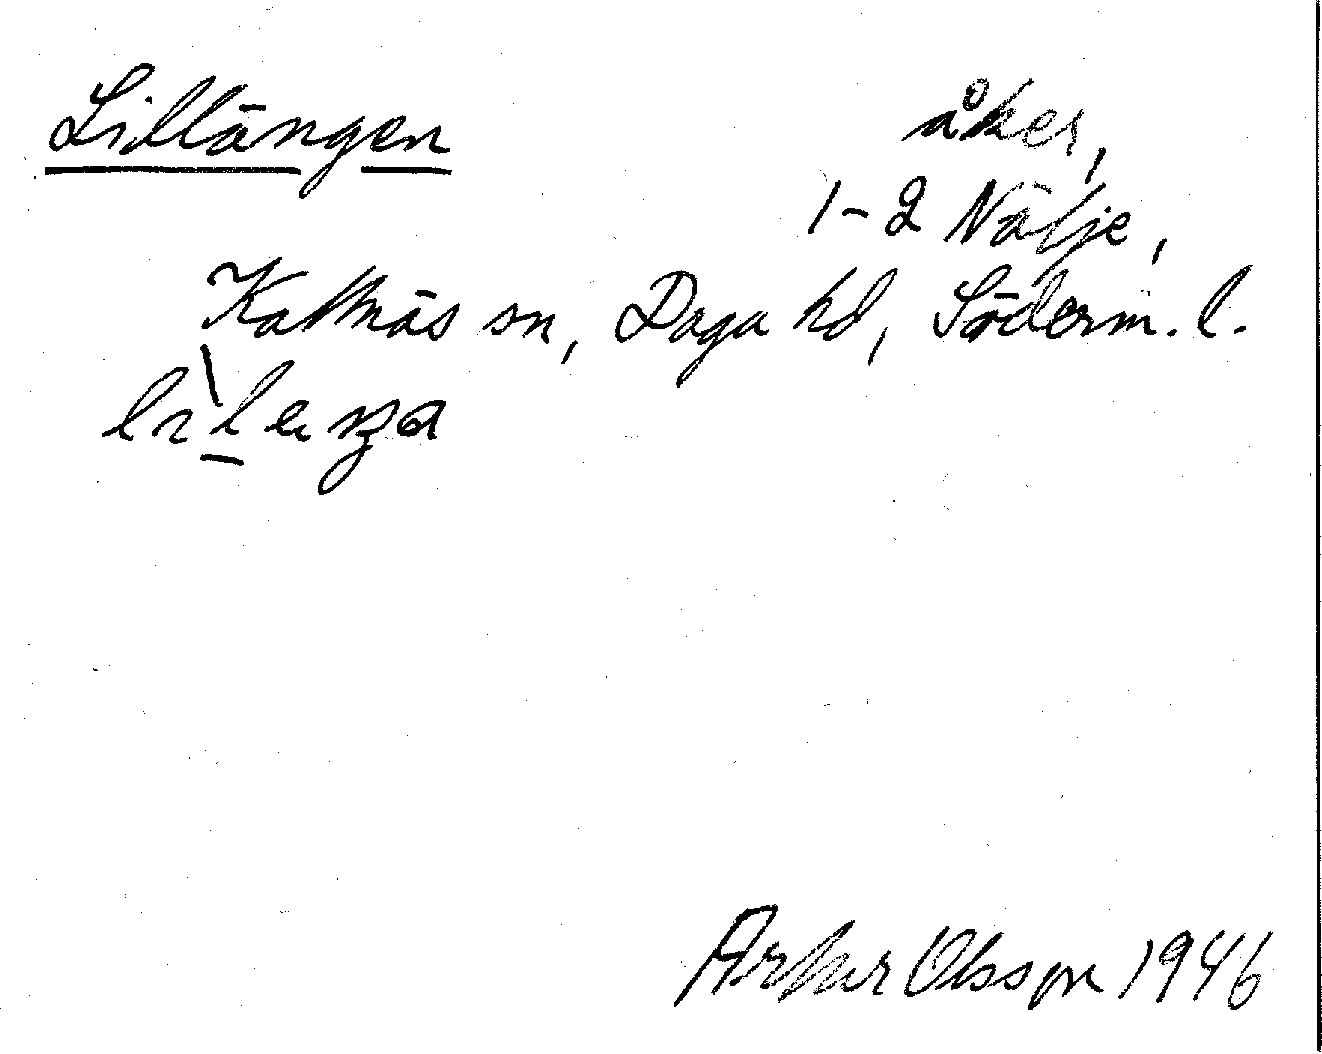 Lillängen
åker,
1-2 Nälje,
Kattnäs sn, Daga hd, Söderm. l.
Arthur Olsson 1946